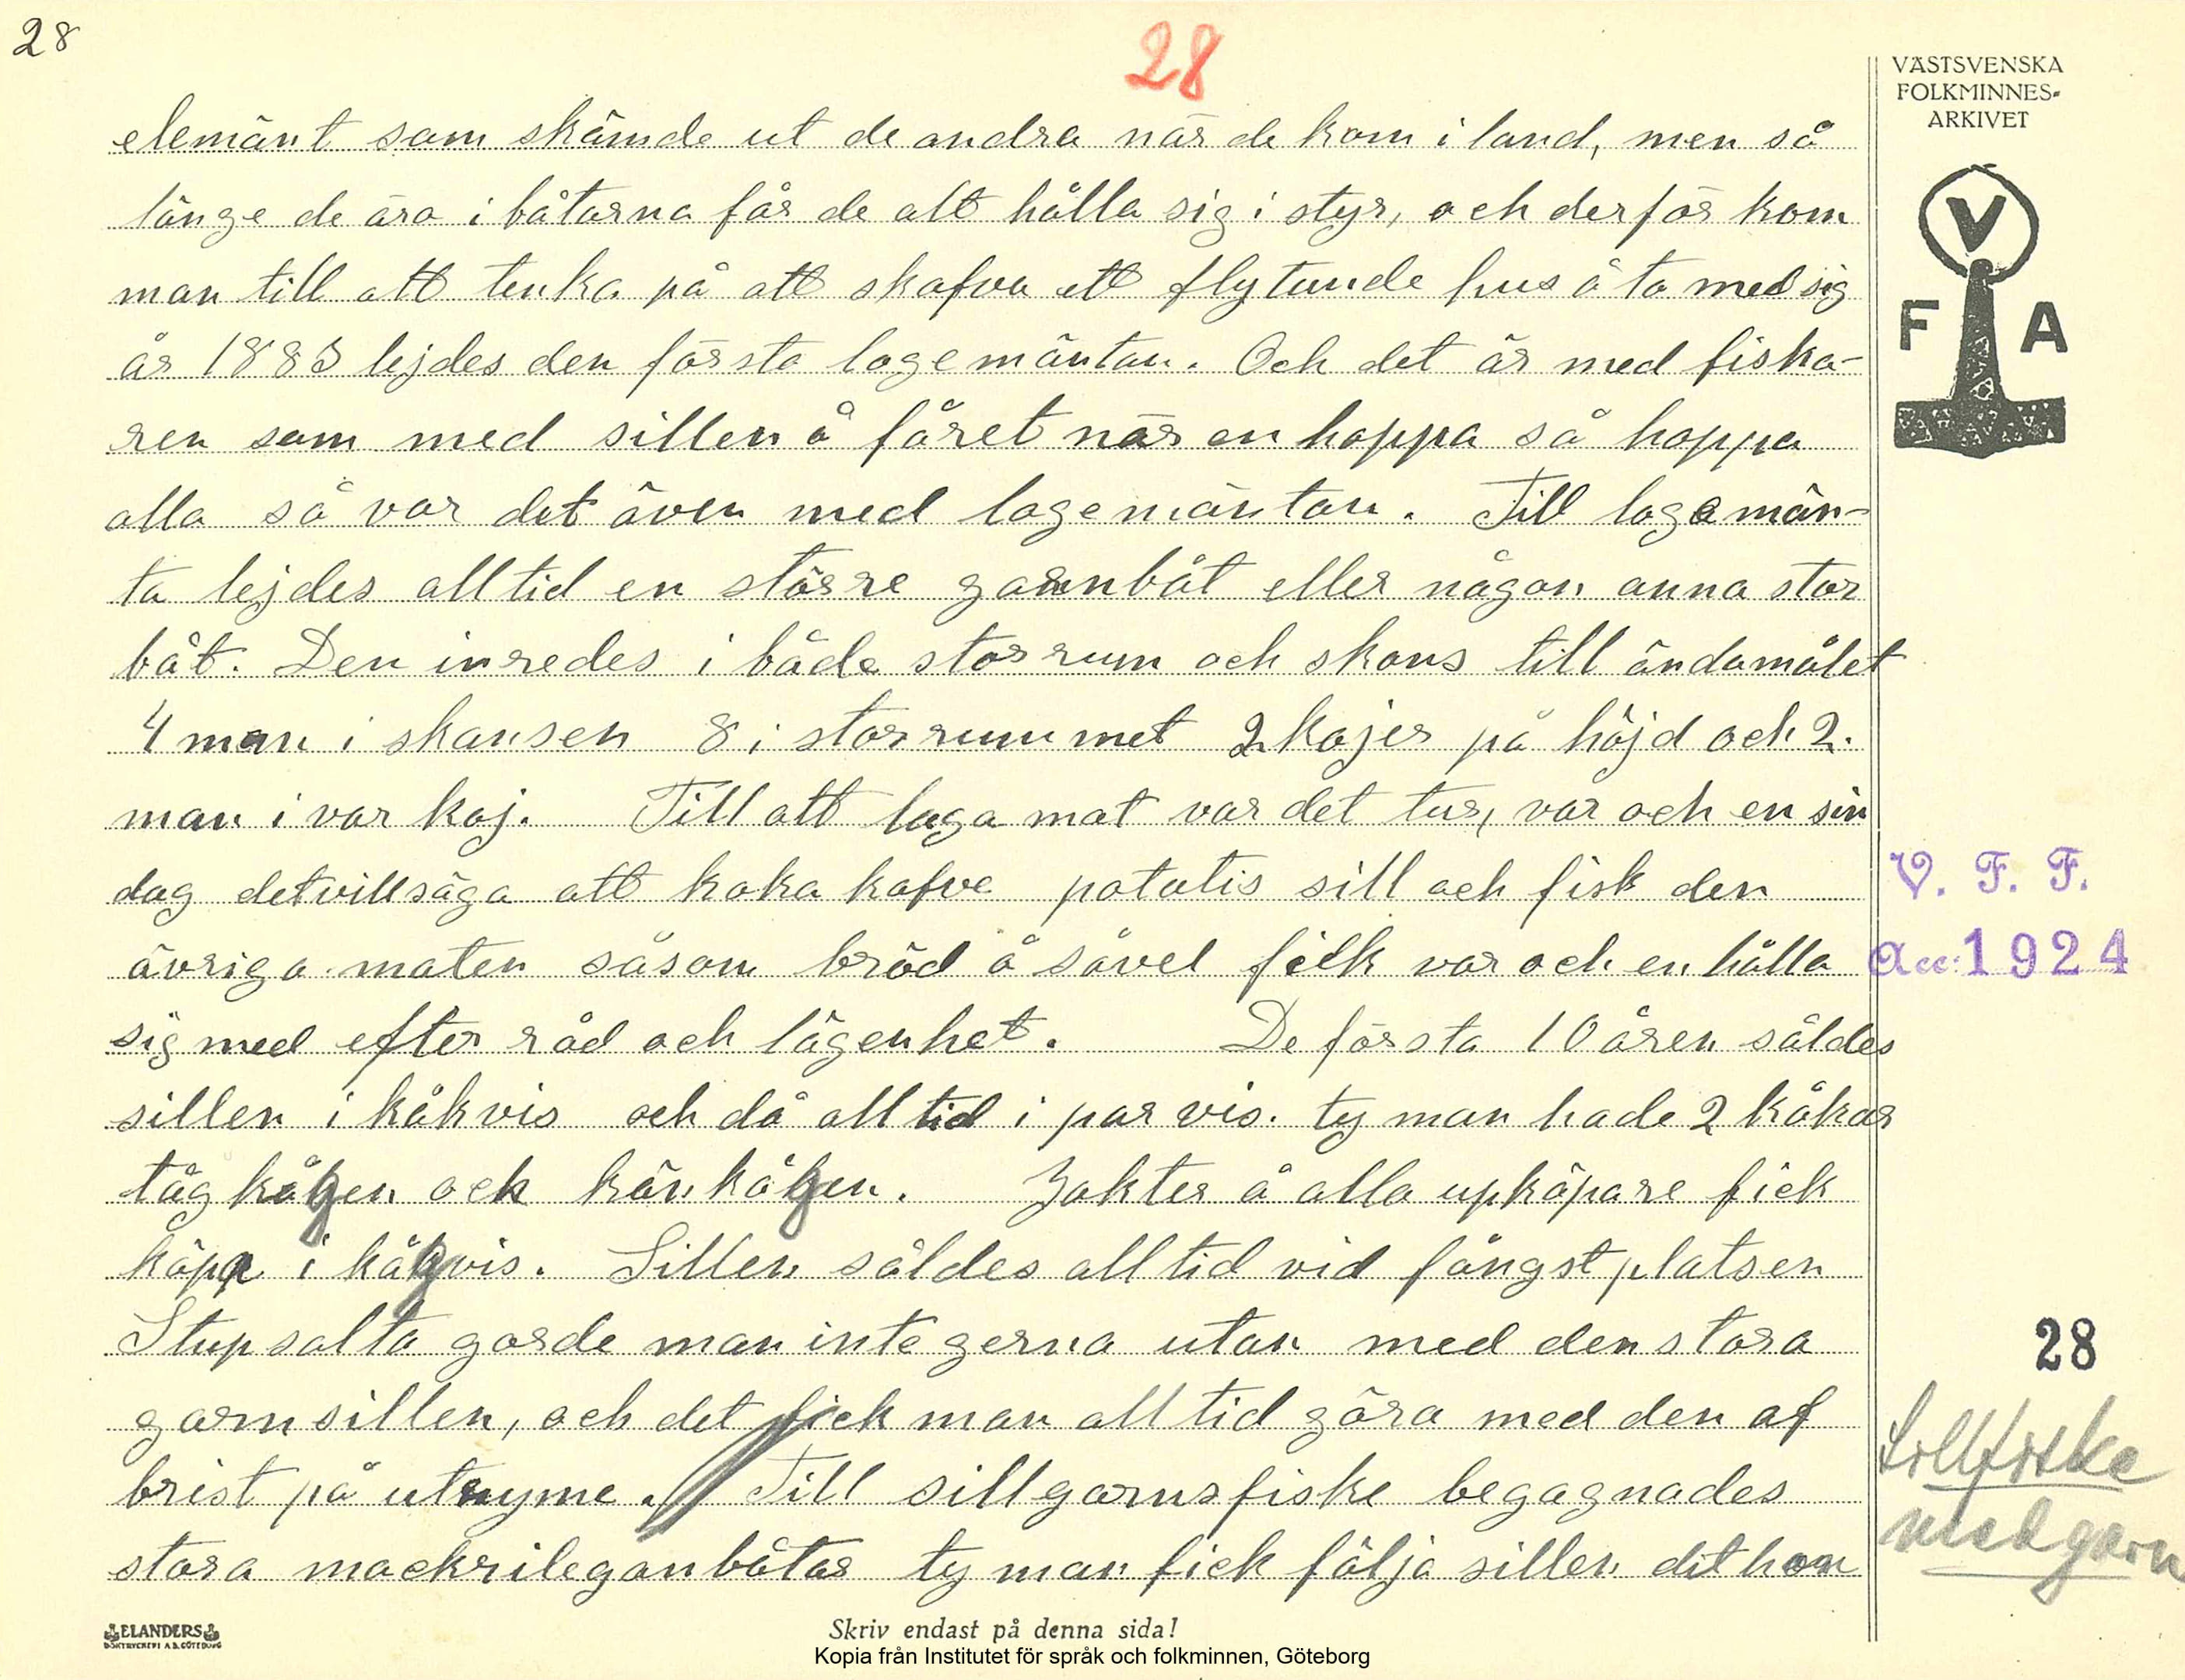 28
28
VÄSTSVENSKA
FOLKMINNES-
ARKIVET
V
F A
elemänt som skämde ut de andra när de kom i land, men så
länge de äro i båtarna får de allt hålla sig i styr, och derför kom
man till att tenka på att skafva ett flytande hus å ta med sig
år 1883 lejdes den första logemäntan. Och det är med fiska-
ren som med sillen å fåret när en hoppa så hoppa
alla så var det även med logemäntan. Till logemän-
ta lejdes alltid en större garnbåt eller någon anna stor
båt. Den inredes i både storrum och skans till ändamålet
4 man i skansen 8 i storrummet 2 kojer på höjd och 2.
man i var koj. Till att laga mat var det tur, var och en sin
dag detvillsäga att koka kafve potatis sill och fisk den
övriga maten såsom bröd å såvel fick var och en hålla
sig med efter råd och lägenhet. De första 10 åren såldes
sillen i kåkvis och då alltid i parvis. ty man hade 2 kåkar
tåg kågen och kånkågen. Jakter å alla upköpare fick
köpa i kågvis. Sillen såldes alltid vid fångstplatsen
Stupsalta gorde man inte gerna utan med den stora
garnsillen, och det fick man alltid göra med den af
brist på utryme. Till sillgarnsfiske begagnades
stora mackrileganbåtar ty man fick följa sillen dit hon
V. F. F.
Acc. 1924
28
Sillfiske
med garn
ELANDERS
BOKTRYCKERI A.B. GÖTEBORG
Skriv endast på denna sida!
Kopia från Institutet för språk och folkminnen, Göteborg